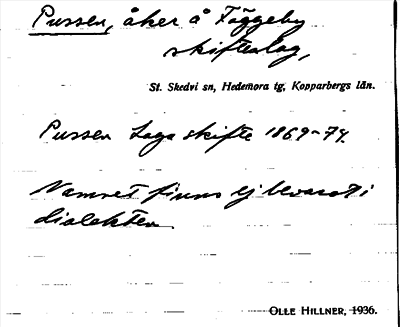 Pussen, åker å Fäggeby
skifteslag,
St. Skedvi sn, Hedemora tg, Kopparbergs län.
Pussen Laga skifte 1869-74.
Namnet finns ej bevarat i
dialekten
OLLE HILLNER, 1936.